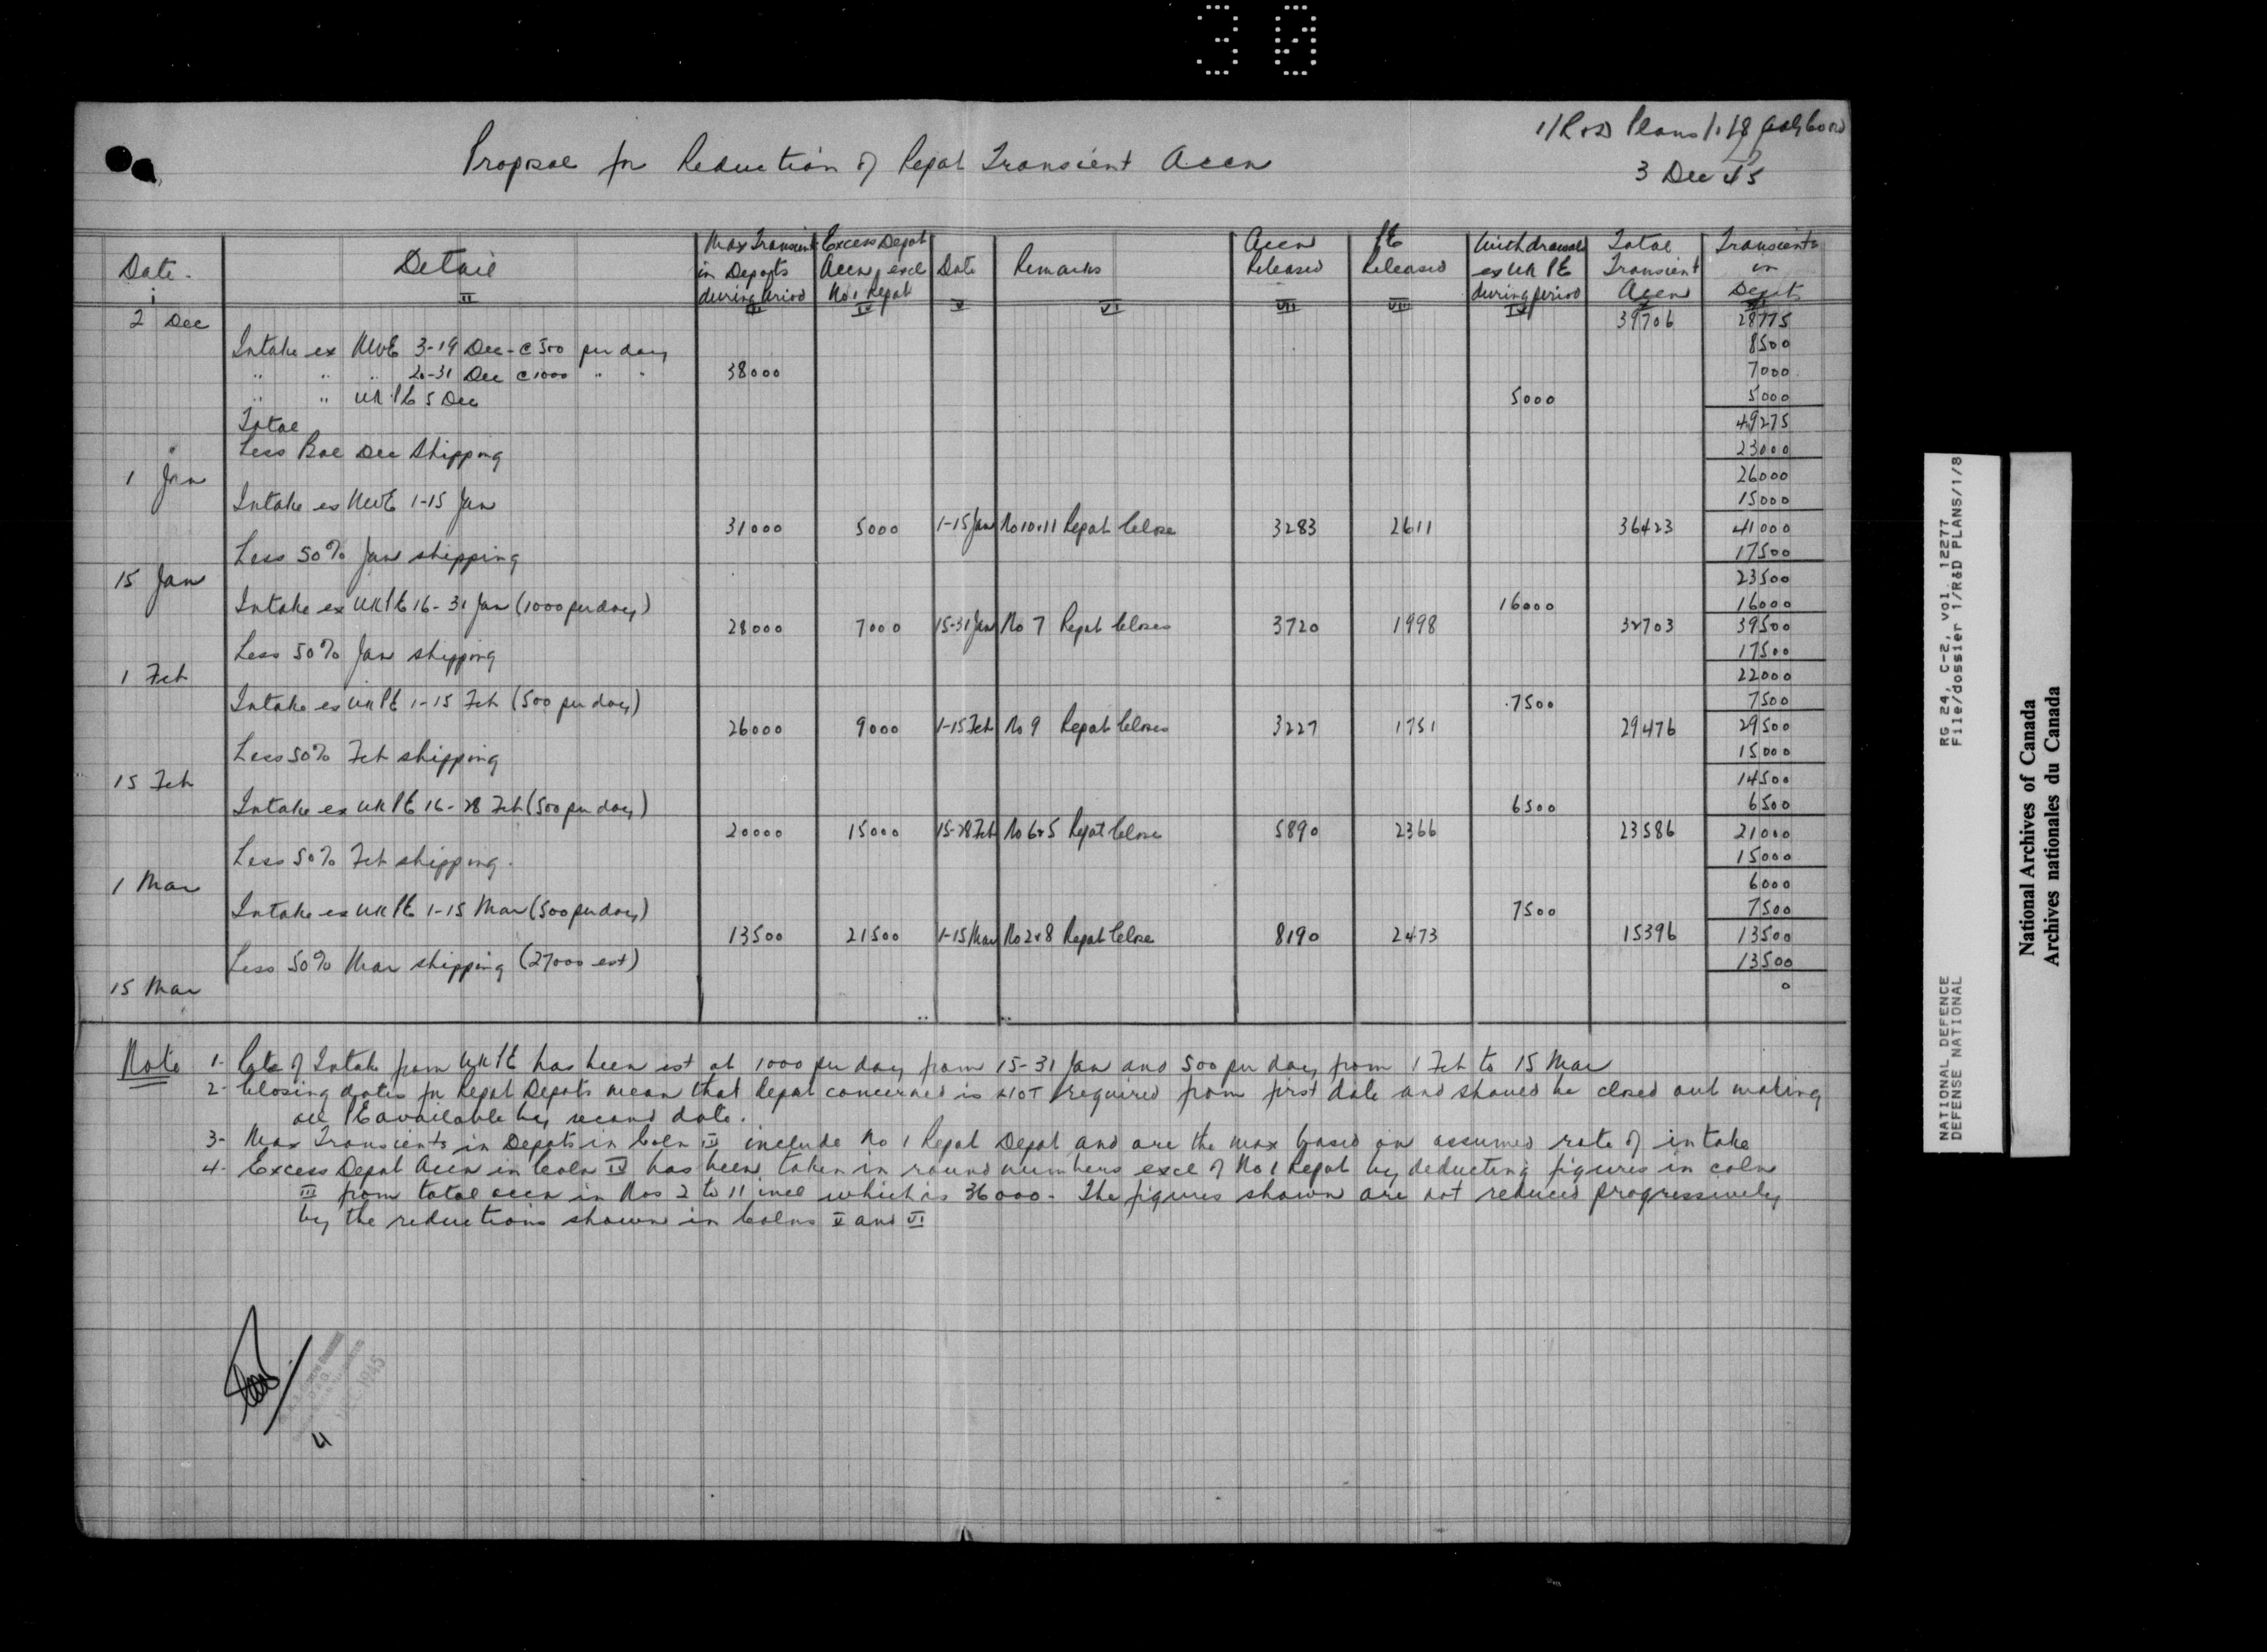 30
1/R&D Plans/1/8
3 Dec 45
Proposal for Reduction of Repat Transient Accn
Date. I | Detail II | Max Transients in Depots during period III | Excess Depot Accn, excl No 1 Repat IV | Date V | Remarks VI | Accn Released VII | PE Released VIII | Withdrawals ex UK PE during period IX | Total Transient Accn X | Transients in Depots XI
2 Dec 39706 28775
Intake ex NWE 3-19 Dec - @ 500 per day 8500
" " " 20-31 Dec @ 1000 " " 38000 7000
" " UK PE 5 Dec 5000 5000
Total 49275
Less Bal Dec Shipping 23000
1 Jan 26000
Intake ex NWE 1-15 Jan 15000
31000 5000 1-15 Jan No 10&11 Repat Close 3283 2611 36423 41000
Less 50% Jan shipping 17500
15 Jan 23500
Intake ex UK PE 16-31 Jan (1000 per day) 16000 16000
28000 7000 15-31 Jan No 7 Repat Closes 3720 1998 32703 39500
Less 50% Jan shipping 17500
1 Feb 22000
Intake ex UK PE 1-15 Feb (500 per day) 7500 7500
26000 9000 1-15 Feb No 9 Repat Closes 3227 1751 29476 29500
Less 50% Feb shipping 15000
15 Feb 14500
Intake ex UK PE 16-28 Feb (500 per day) 6500 6500
20000 15000 15-28 Feb No 6&5 Repat Close 5890 2366 23586 21000
Less 50% Feb shipping. 15000
1 Mar 6000
Intake ex UK PE 1-15 Mar (500 per day) 7500 7500
13500 21500 1-15 Mar No 2&8 Repat Close 8190 2473 15396 13500
Less 50% Mar shipping (27000 est) 13500
15 Mar 0
Note 1- Rate of Intake from UK PE has been est at 1000 per day from 15-31 Jan and 500 per day from 1 Feb to 15 Mar
2- Closing dates for Repat Depots mean that Repat concerned is NOT required from first date and should be closed out making
all PE available by second date.
3- Max Transients in Depots in Coln III include No 1 Repat Depot and are the max based on assumed rate of intake
4- Excess Depot Accn in Coln IV has been taken in round numbers excl of No 1 Repat by deducting figures in coln
III from total accn in Nos 2 to 11 incl which is 36000 - The figures shown are not reduced progressively
by the reductions shown in Colns V and VI
4 DEC 1945
NATIONAL DEFENCE RG 24, C-2, vol. 12277
DEFENSE NATIONAL File/dossier 1/R&D PLANS/1/8
National Archives of Canada
Archives nationales du Canada